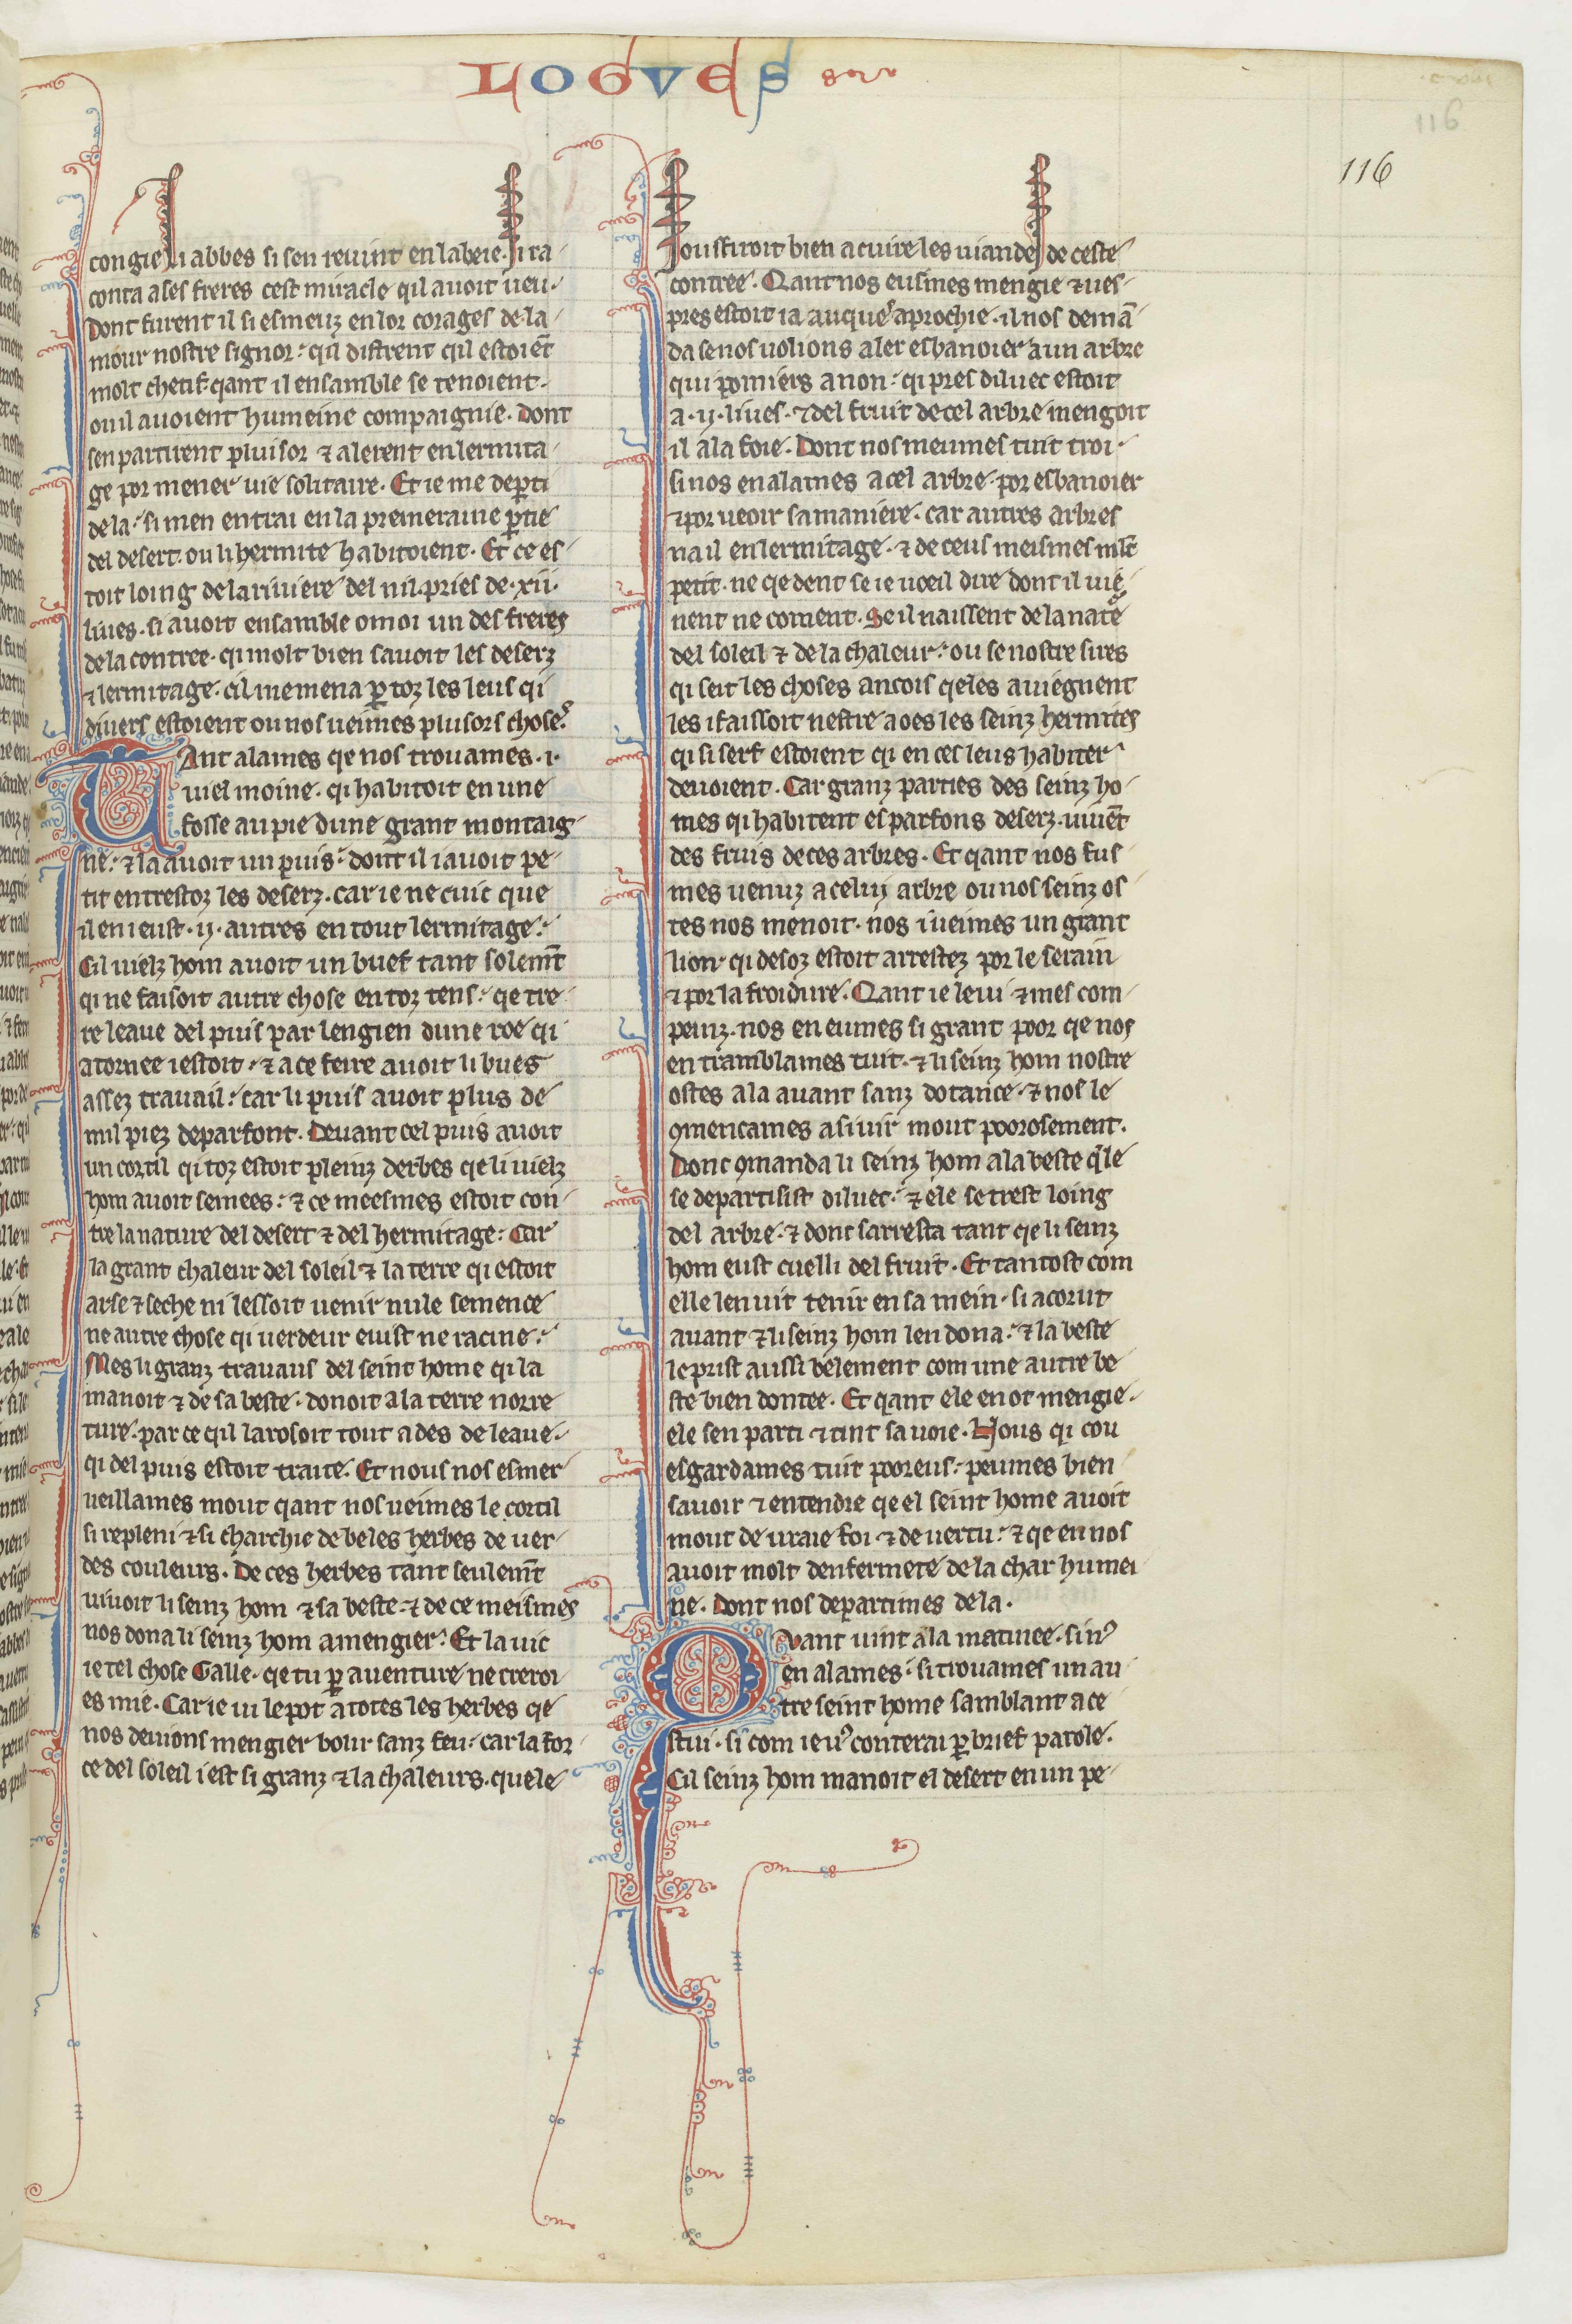 LOGVES
116
116
congie li abbes si sen reuint en labeie. si ra-
conta a ses freres cest miracle qil auoit ueu.
Dont furent il si esmeuz en lor corages de la-
mour nostre signor: qil distrent qil estoiēt
molt chetif qant il ensamble se tenoient.
ou il auoient humeine compaignie. Dont
sen partirent pluisor ⁊ alerent en lermita-
ge por mener uie solitaire. Et ie me dep̄ti
de la: si men entrai en la premeraine p̄tie
del desert. ou li hermite habitoient. Et ce es-
toit loing de la riuiere del nil. pries de .xii.
liues. si auoit ensamble o moi un des freres
de la contree. qi molt bien sauoit les deserz
⁊ lermitage. cil me mena p̄ toz les leus qi
diuers estoient ou nos ueimes plusors choseˢ.
TAnt alames qe nos trouames .i.
uiel moine. qi habitoit en une
fosse au pie dune grant montaig-
ne: ⁊ la auoit un puis: dont il i auoit pe-
tit entrestoz les deserz. car ie ne cuic que
il en i eust .ij. autres en tout lermitage:
Cil uielz hom auoit un buef tant solemt̄
qi ne faisoit autre chose en toz tens: qe tre-
re leaue del puis par lengien dune roe qi
atornee i estoit: ⁊ a ce feire auoit li bues
assez trauail: car li puis auoit plus de
mil piez de parfont. Deuant cel puis auoit
un cortil qi toz estoit pleinz derbes qe li uielz
hom auoit semees: ⁊ ce meesmes estoit con-
tre la nature del desert ⁊ del hermitage: Car
la grant chaleur del soleil ⁊ la terre qi estoit
arse ⁊ seche ni lessoit uenir nule semence
ne autre chose qi uerdeur eust ne racine:
Mes li granz trauaus del seint home qi la
manoit ⁊ de sa beste. donoit a la terre norre-
ture. par ce qil larosoit tout ades de leaue.
qi del puis estoit traite. Et nous nos esmer-
ueillames mout qant nos ueimes le cortil
si repleni ⁊ si charchie de beles herbes de uer-
des couleurs. De ces herbes tant seulemt̄
uiuoit li seinz hom ⁊ sa beste. ⁊ de ce meismes
nos dona li seinz hom a mengier: Et la uic
ie tel chose Galle. qe tu p̄ auenture ne creroi-
es mie. Car ie ui le pot a totes les herbes qe
nos deuions mengier bolir sanz feu. car la for-
ce del soleil i est si granz ⁊ la chaleurs. quele
souffiroit bien a cuire les uiandes de ceste
contree. Qant nos eusmes mengie ⁊ ues-
pres estoit ia auqueˢ aprochie. il nos demā-
da se nos uolions aler esbanoier a un arbre
qui pomiers a non: qi pres diluec estoit
a .ij. liues. ⁊ del fruit de cel arbre mengoit
il a la foie. Dont nos meumes tuit troi.
si nos en alames a cel arbre. por esbanoier
⁊ por ueoir sa maniere. car autres arbres
na il en lermitage. ⁊ de ceus meismes ml̄t
petit. ne qedent se ie uoeil dire dont il uiē-
nent ne coment. Se il naissent de la nate
del soleil ⁊ de la chaleur: ou se nostre sires
qi seit les choses ancois qeles auiegnent
les i faissoit nestre a oes les seinz hermites
qi si serf estoient qi en ces leus habiter
deuoient. Car granz parties des seinz ho-
mes qi habitent es parfons deserz. uiuēt
des fruis de ces arbres. Et qant nos fus-
mes uenuz a celui arbre ou nos seinz os-
tes nos menoit. nos i ueimes un grant
lion. qi desoz estoit arrestez por le serain
⁊ por la froidure. Qant ie le ui ⁊ mes com-
peinz. nos en eumes si grant poor qe nos
en tramblames tuit. ⁊ li seinz hom nostre
ostes ala auant sanz dotance. ⁊ nos le
ꝯmencames a siuir mout poorosement.
Donc ꝯmanda li seinz hom a la beste q̄le
se departisist diluec. ⁊ ele se trest loing
del arbre. ⁊ donc sarresta tant qe li seinz
hom eust cuelli del fruit. Et tantost com
elle len uit tenir en sa mein. si acorut
auant ⁊ li seinz hom len dona: ⁊ la beste
le prist aussi belement com une autre be-
ste bien dontee. Et qant ele en ot mengie.
ele sen parti ⁊ tint sa uoie. Nous qi cou
esgardames tuit pooreus: peumes bien
sauoir ⁊ entendre qe el seint home auoit
mout de uraie foi ⁊ de uertu: ⁊ qe en nos
auoit molt denfermete de la char humei-
ne. Dont nos departimes de la.
Quant uint a la matinee. si nˢ
en alames: si trouames un au-
tre seint home samblant a ce-
stui. si com ie uˢ conterai p̄ brief parole.
Cil seinz hom manoit el desert en un pe-